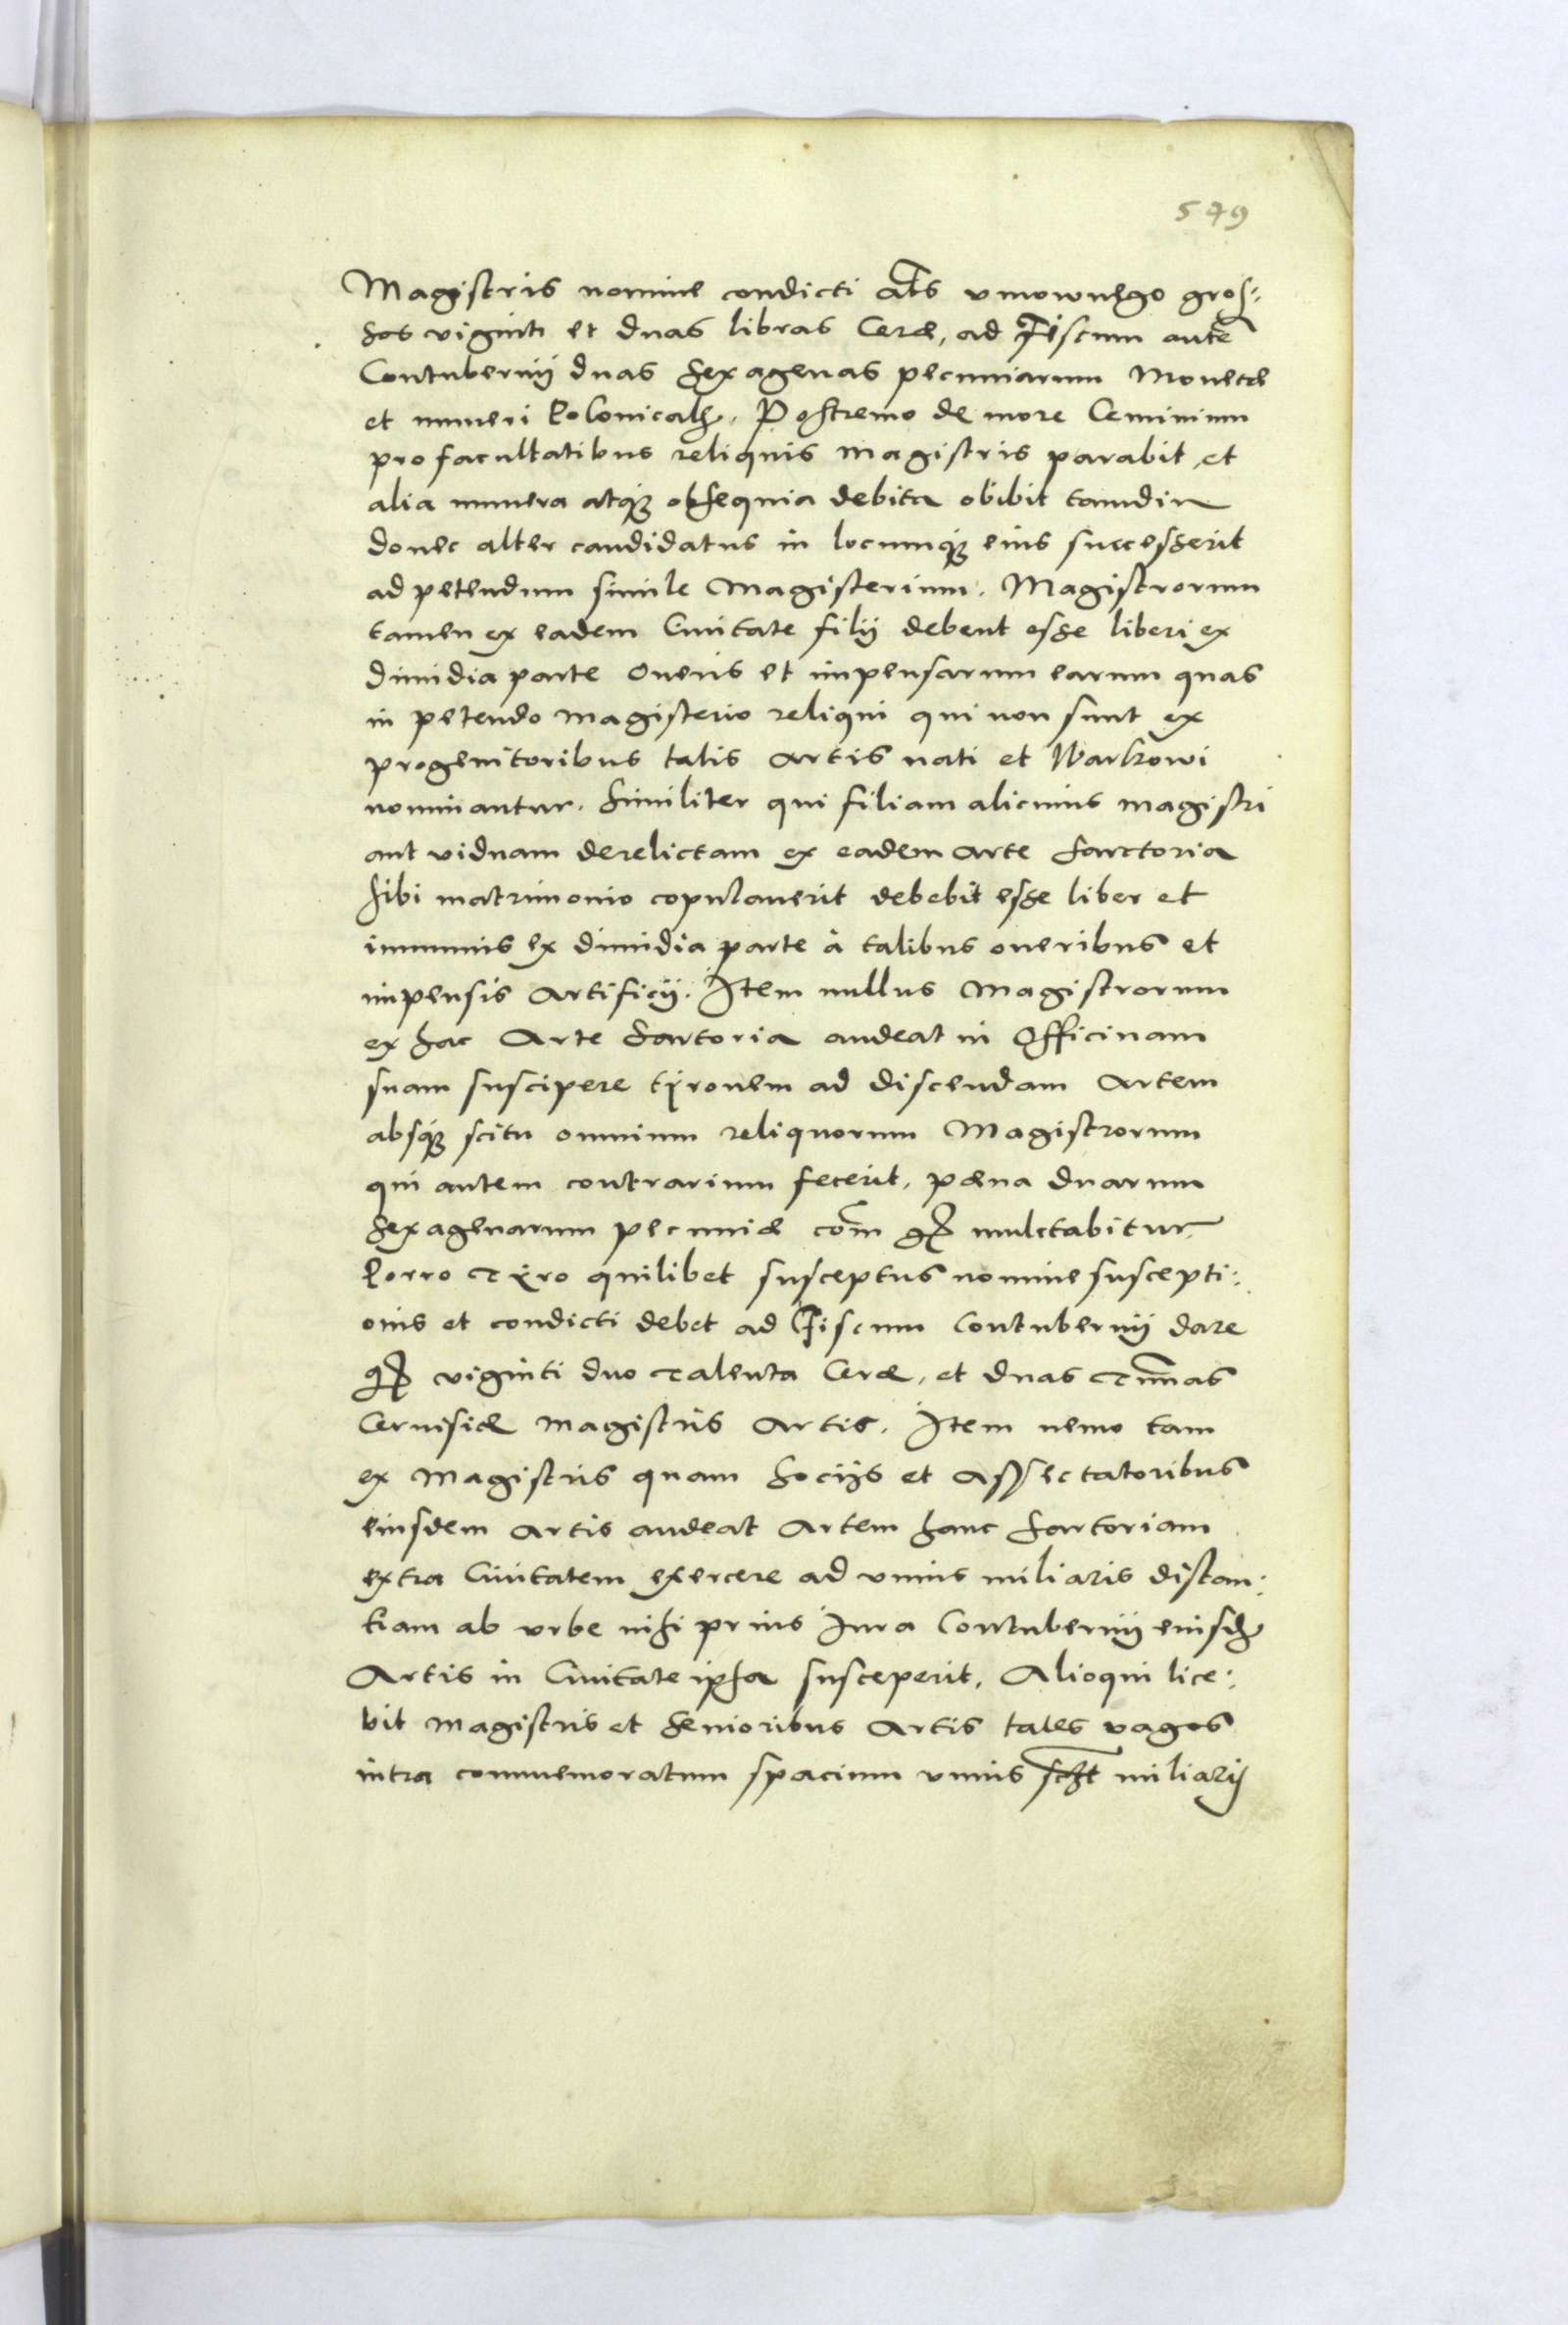 579
Magistris nomine condicti al͠s vmownego gros-
sos viginti et duas libras Cerae, ad Fiscum aute͠
Contubernij duas sexagenas pecuniarum Monetae
et numeri Polonicalis. Postremo de more Ceminium
pro facultatibus reliquis magistris parabit, et
alia munera atqꝫ obsequia debita obibit tamdiu
donec alter candidatus in locumqꝫ eius successerit
ad petendum simile Magisterium. Magistrorum
tamen ex eadem Ciuitate filij debent esse liberi ex
dimidia parte oneris et impensarum earum quas
in petendo magisterio reliqui qui non sunt ex
progenitoribus talis artis nati et Warkowi
nominantur. Similiter qui filiam alicuius magistri
aut viduam derelictam ex eadem arte sarctoria
sibi matrimonio copulauerit debebit esse liber et
immunis ex dimidia parte à talibus oneribus et
impensis artificij. Item nullus Magistrorum
ex hac Arte sartoria audeat in Officinam
suam suscipere tÿronem ad discendam artem
absqꝫ scitu omnium reliquorum Magistrorum
qui autem contrarium fecerit, paena duarum
sexagenarum pecuniae com͠ gr mulctabitur
Porro Tÿro quilibet susceptus nomine suscepti:
onis et condicti debet ad Fiscum Contubernij dare
gr viginti duo Talenta Cerae, et duas Tunnas
Ceruisiae magistris artis. Item nemo tam
ex magistris quam socijs et assectatoribus
eiusdem artis audeat artem hanc sartoriam
extra Ciuitatem exercere ad vnius miliaris distan:
tiam ab vrbe nisi prius Iura Contubernij eiusd
Artis in Ciuitate ipsa susceperit. Alioqui lice:
bit magistris et senioribus artis tales vagos
intra commemoratum spacium vnius miliaris